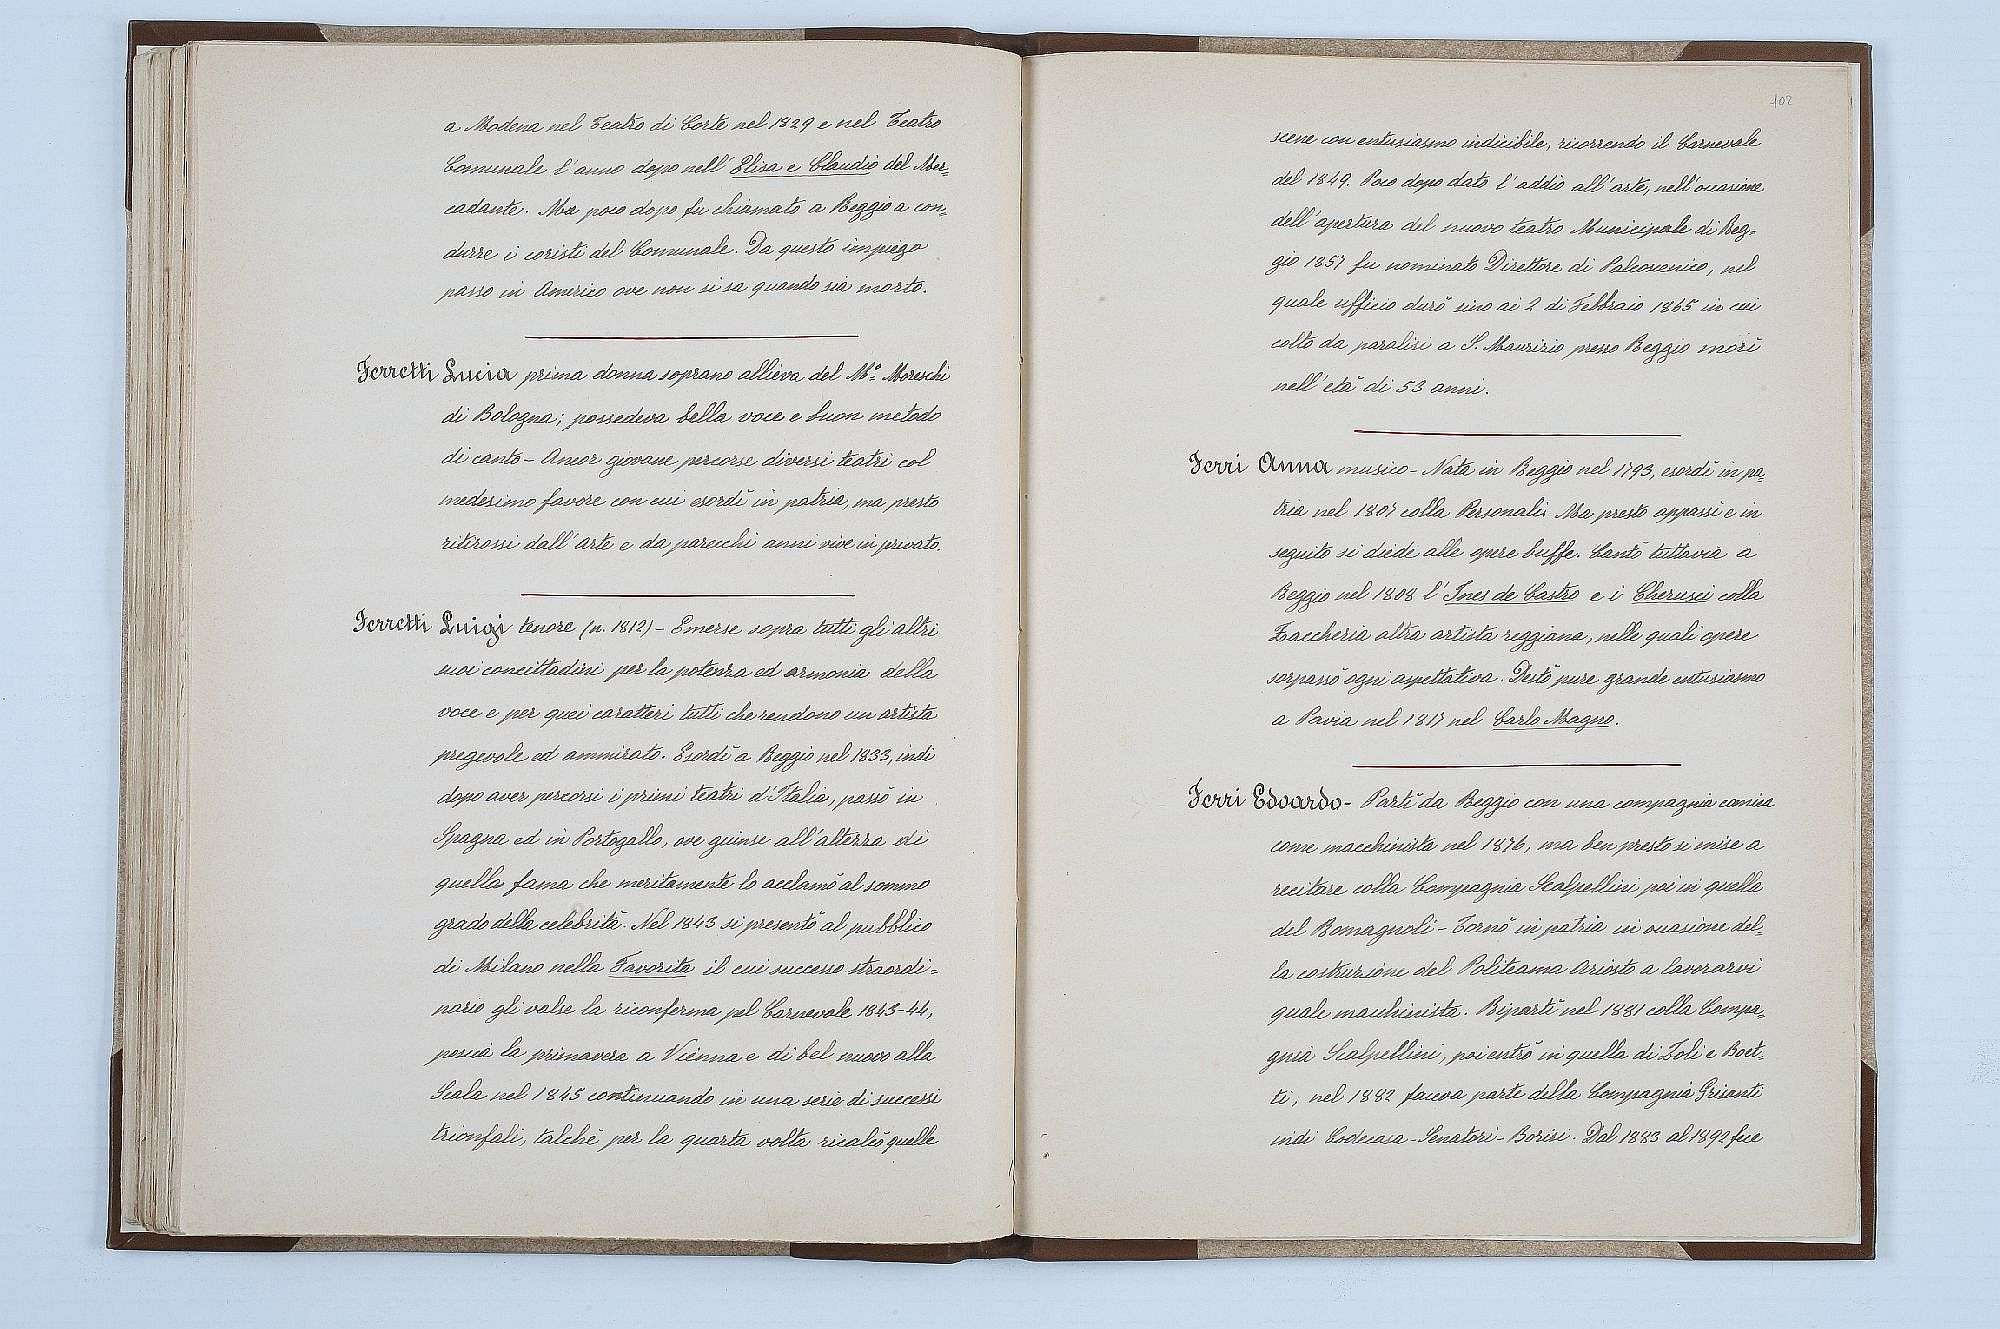 a Modena nel Teatro di Corte nel 1829 e nel Teatro
Comunale l'anno dopo nell'Elisa e Claudio del Mer=
cadante. Ma poco dopo fu chiamato a Reggio a con=
durre i coristi del Comunale. Da questo impiego
passò in America ove non si sa quando sia morto.
Ferretti Lucia prima donna soprano allieva del M.o Moreschi
di Bologna; possedeva bella voce e buon metodo
di canto - Ancor giovane percorse diversi teatri col
medesimo favore con cui esordì in patria, ma presto
ritirossi dall'arte e da parecchi anni vive in privato.
Ferretti Luigi tenore (n. 1812) - Emerse sopra tutti gli altri
suoi concittadini per la potenza ed armonia della
voce e per quei caratteri tutti che rendono un artista
pregevole ed ammirato. Esordì a Reggio nel 1833, indi
dopo aver percorsi i primi teatri d'Italia, passò in
Spagna ed in Portogallo, ove giunse all'altezza di
quella fama che meritamente lo acclamò al sommo
grado della celebrità. Nel 1843 si presentò al pubblico
di Milano nella Favorita il cui successo straordi=
nario gli valse la riconferma pel Carnevale 1843-44,
poscia la primavera a Vienna e di bel nuovo alla
Scala nel 1845 continuando in una serie di successi
trionfali, talchè per la quarta volta ricalcò quelle
102
scene con entusiasmo indicibile, ricorrendo il Carnevale
del 1849. Poco dopo dato l'addio all'arte, nell'occasione
dell'apertura del nuovo teatro Municipale di Reg=
gio 1857 fu nominato Direttore di Palcoscenico, nel
quale ufficio durò sino ai 2 di Febbraio 1865 in cui
colto da paralisi a S. Maurizio presso Reggio morì
nell'età di 53 anni.
Ferri Anna musico - Nata in Reggio nel 1793, esordì in pa=
tria nel 1807 colla Personali. Ma presto appassì e in
seguito si diede alle opere buffe. Cantò tuttavia a
Reggio nel 1808 l'Ines de Castro e i Cherusci colla
Zaccheria altra artista reggiana, nelle quali opere
sorpassò ogni aspettativa. Destò pure grande entusiasmo
a Pavia nel 1817 nel Carlo Magno.
Ferri Edoardo - Partì da Reggio con una compagnia comica
come macchinista nel 1876, ma ben presto si mise a
recitare colla Compagnia Scalpellini poi in quella
del Romagnoli - Tornò in patria in occasione del=
la costruzione del Politeama Ariosto a lavorarvi
quale macchinista. Ripartì nel 1881 colla Compa=
gnia Scalpellini, poi entrò in quella di Zoli e Boet=
ti, nel 1882 faceva parte della Compagnia Grisanti
indi Codecasa - Senatori - Borisi. Dal 1883 al 1892 fece